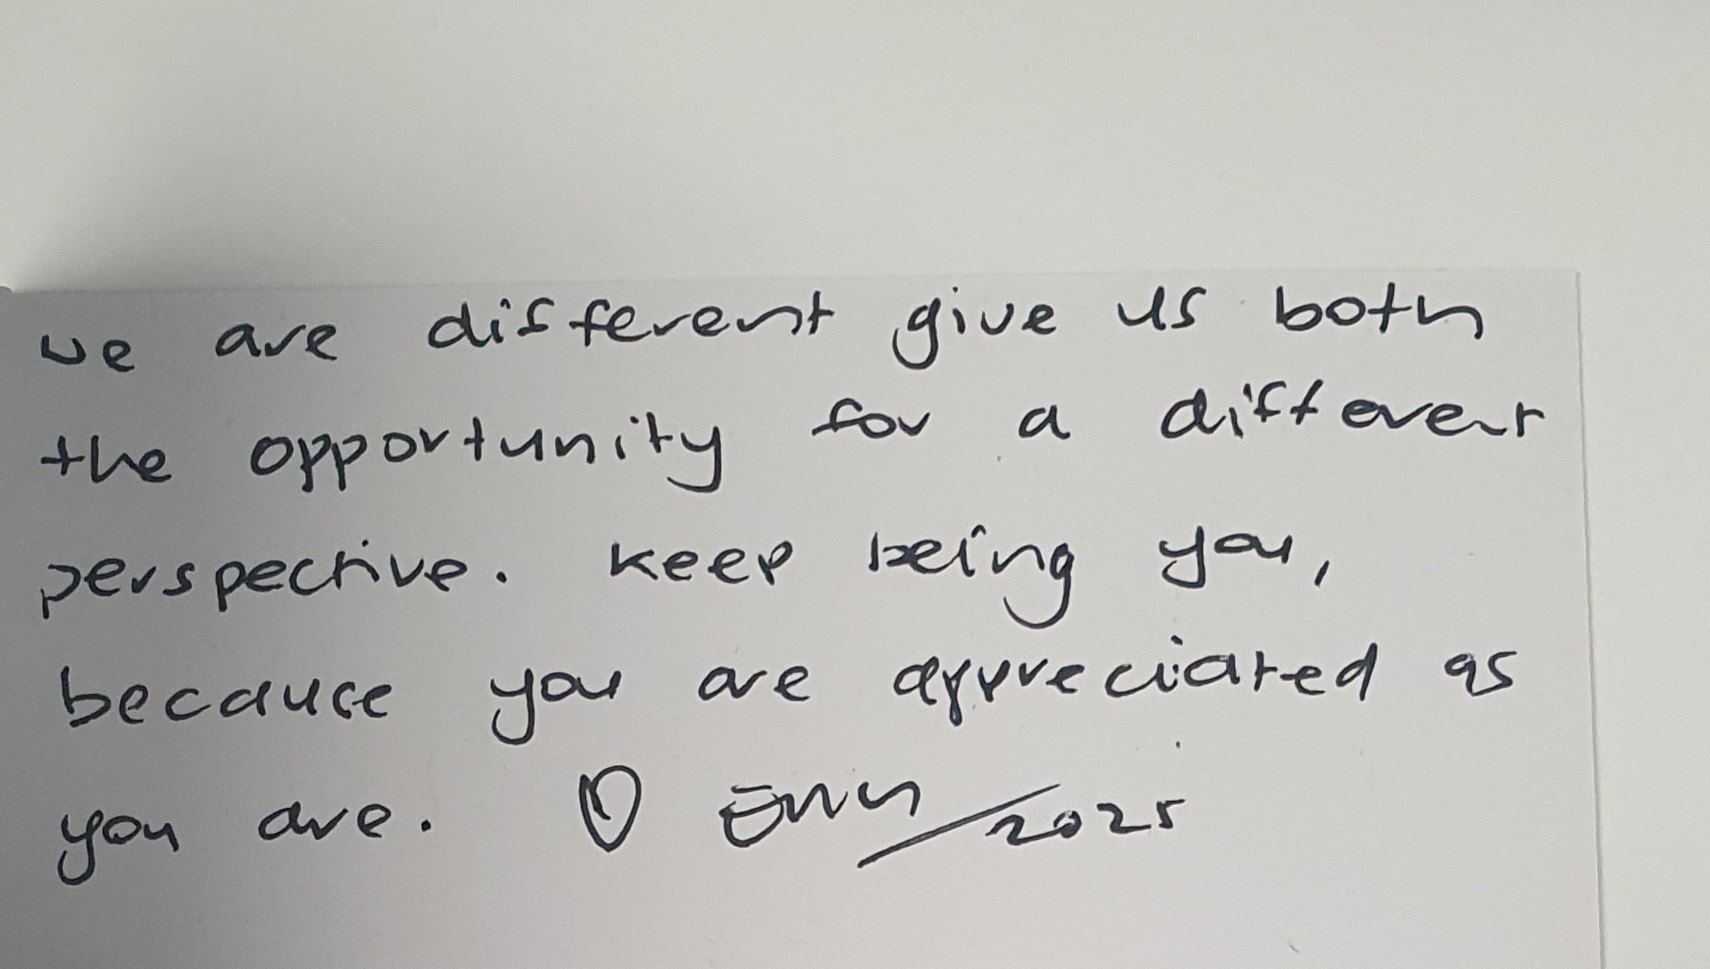 we are different give us both
the opportunity for a different
perspective. Keep being you,
because you are appreciated as
you are. /2025